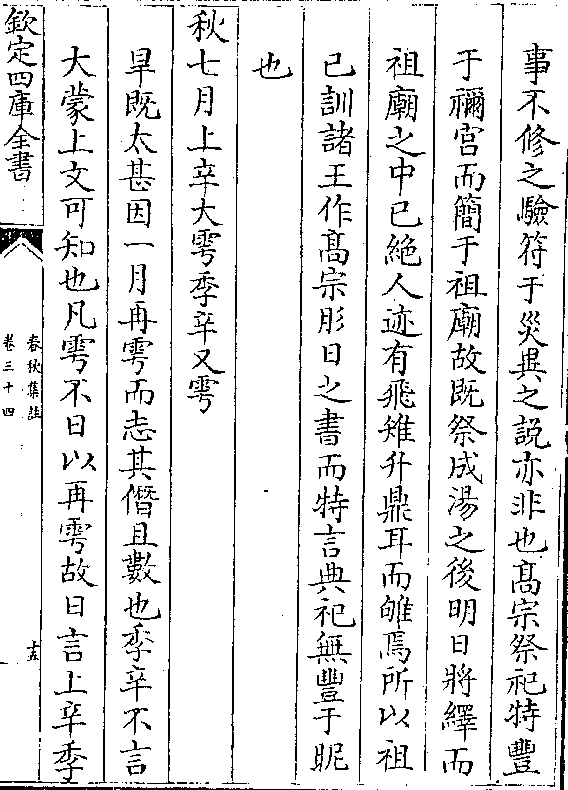 事不修之驗符于災異之説亦非也髙宗祭祀特豐
于禰宫而簡于祖廟故既祭成湯之後明日將繹而
祖廟之中已絶人迹有飛雉升鼎耳而雊焉所以祖
已訓諸王作髙宗肜日之書而特言典祀無豐于昵
也
秋七月上辛大雩季辛又雩
旱既太甚因一月再雩而志其僭且數也季辛不言
大蒙上文可知也凡雩不日以再雩故日言上辛季
欽定四庫全書
春秋集註
卷三十四
十五